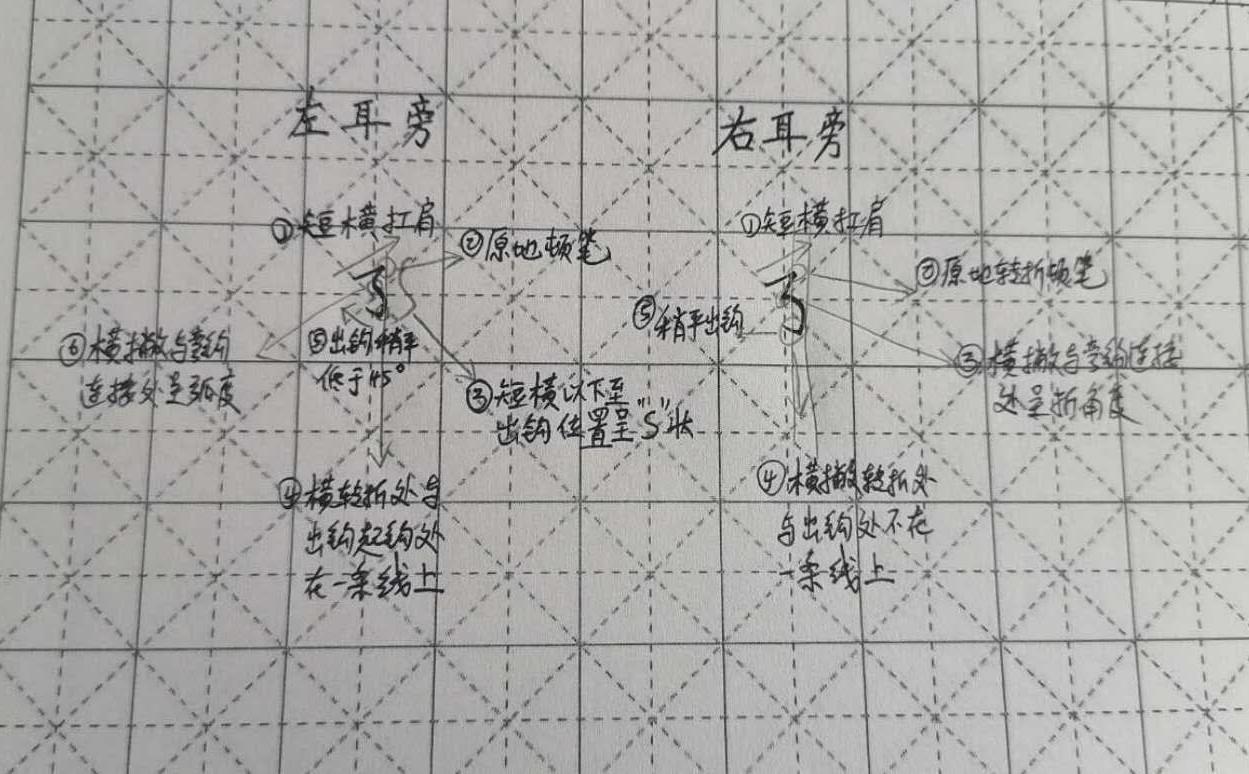 左耳旁
①短横扛肩
②原地顿笔
③短横以下至
出钩位置呈"S"状
④横转折处与
出钩起钩处
在一条线上
⑤出钩稍平
低于45°
⑥横撇与弯钩
连接处呈弧度
右耳旁
①短横扛肩
②原地转折顿笔
③横撇与弯钩连接
处呈折角度
④横撇转折处
与出钩处不在
一条线上
⑤稍平出钩